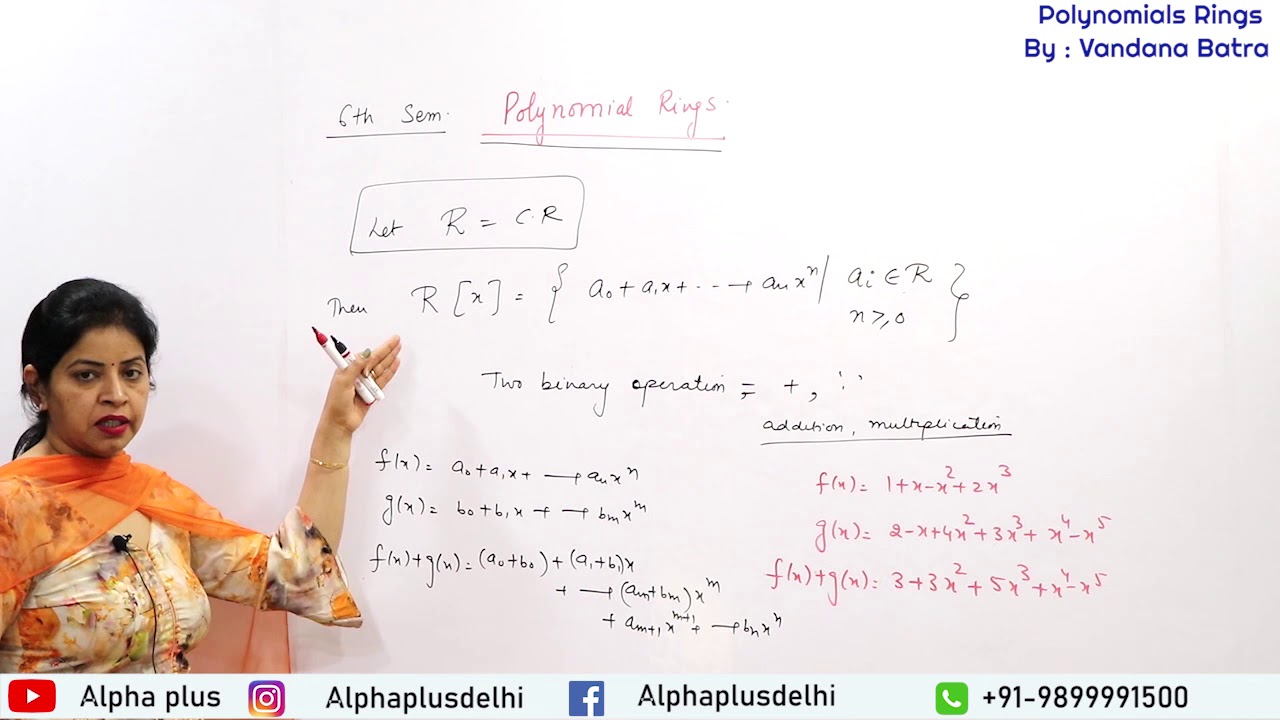 Polynomials Rings
By : Vandana Batra
6th Sem. Polynomial Rings.
Let R = C.R
Then R[x] = { a₀ + a₁x + ---→ aₙxⁿ | aᵢ ∈ R
n ≥ 0 }
Two binary operation = +, '.'
addition, multiplication
f(x) = a₀ + a₁x + ⟶ aₙxⁿ
g(x) = b₀ + b₁x + ⟶ bₘxᵐ
f(x) + g(x) = (a₀+b₀) + (a₁+b₁)x
+ ⟶ (aₘ+bₘ)xᵐ
+ aₘ₊₁xᵐ⁺¹ + ⟶ bₙxⁿ
f(x) = 1+x-x²+2x³
g(x) = 2-x+4x²+3x³+x⁴-x⁵
f(x)+g(x) = 3+3x²+5x³+x⁴-x⁵
Alpha plus Alphaplusdelhi Alphaplusdelhi +91-9899991500